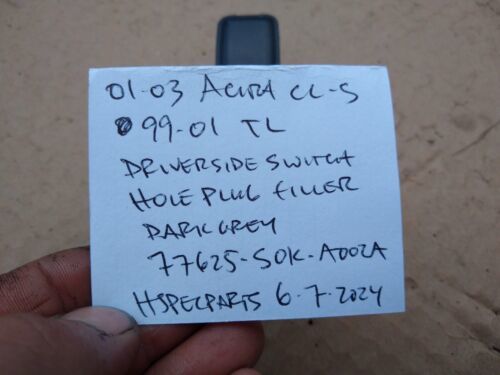 01-03 ACURA CL-S
99-01 TL
DRIVERSIDE SWITCH
HOLE PLUG FILLER
DARK GREY
77625-SOK-A002A
HSPECPARTS 6-7-2024